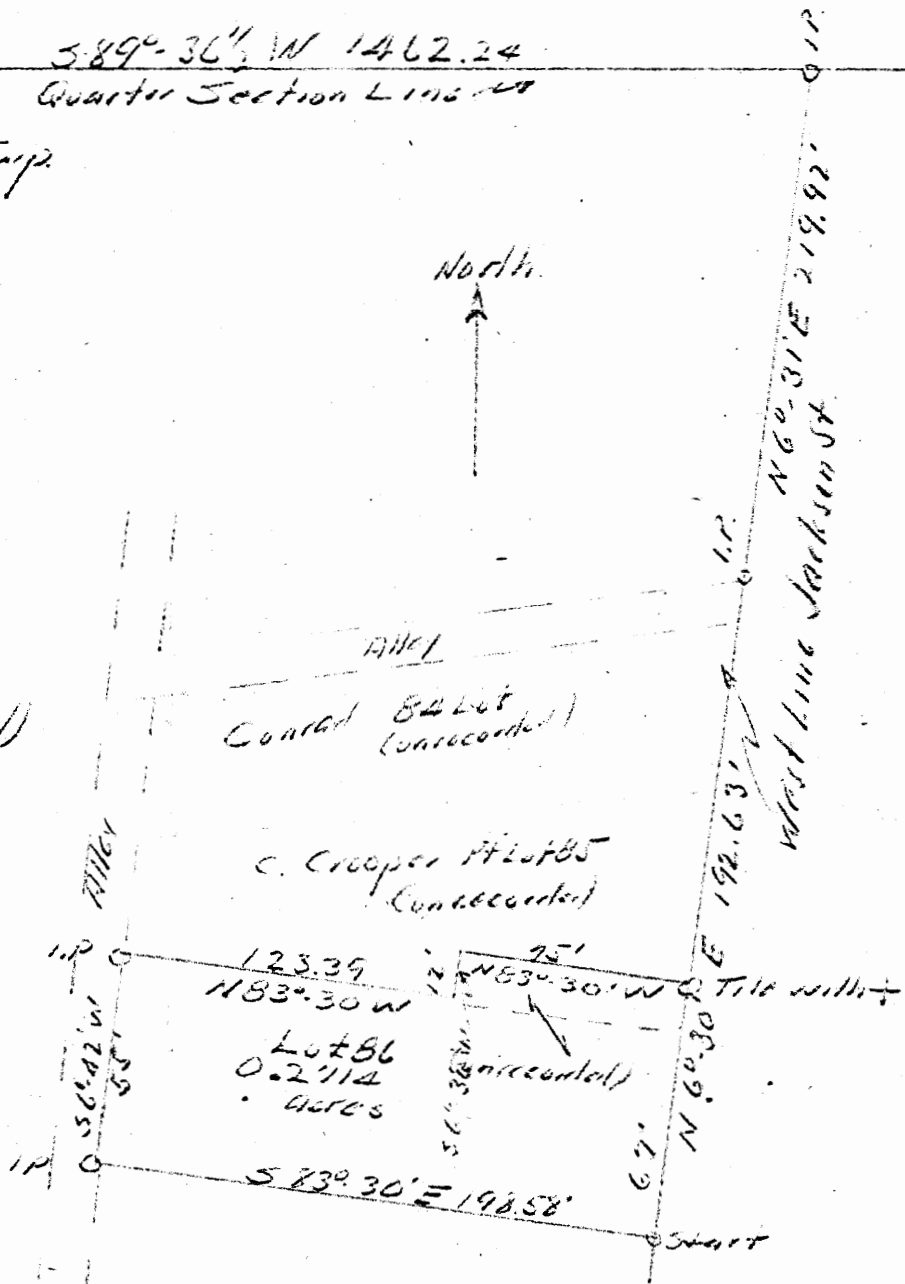 S89°-36'½ W 1462.24
Quarter Section Line
Twp.
I.P.
North
N 6°-31' E 219.92'
West Line Jackson St
I.P.
Alley
Conrad 84 Lot
(unrecorded)
Alley
N 6°-30' E 192.63'
C. Crooper Pt Lot 85
(unrecorded)
I.P.
123.39
N83°-30 W
12'
75'
N83°-30' W
Tile with +
S6°-42' W
55'
Lot 86
0.2714
acres
S6°-30' W
(unrecorded)
67'
I.P.
S 83°-30' E 198.58'
Start